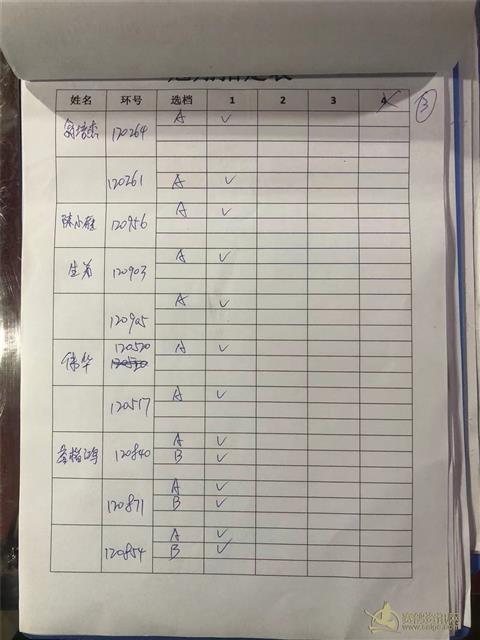 姓名 环号 选档 1 2 3 4 ③
120264 A ✓
120261 A ✓
陈小雄 120956 A ✓
生为 120903 A ✓
120905 A ✓
伟华 120520 A ✓
120520
120517 A ✓
120840 A ✓
B ✓
120871 A ✓
B ✓
120854 A ✓
B ✓
赛鸽资讯网